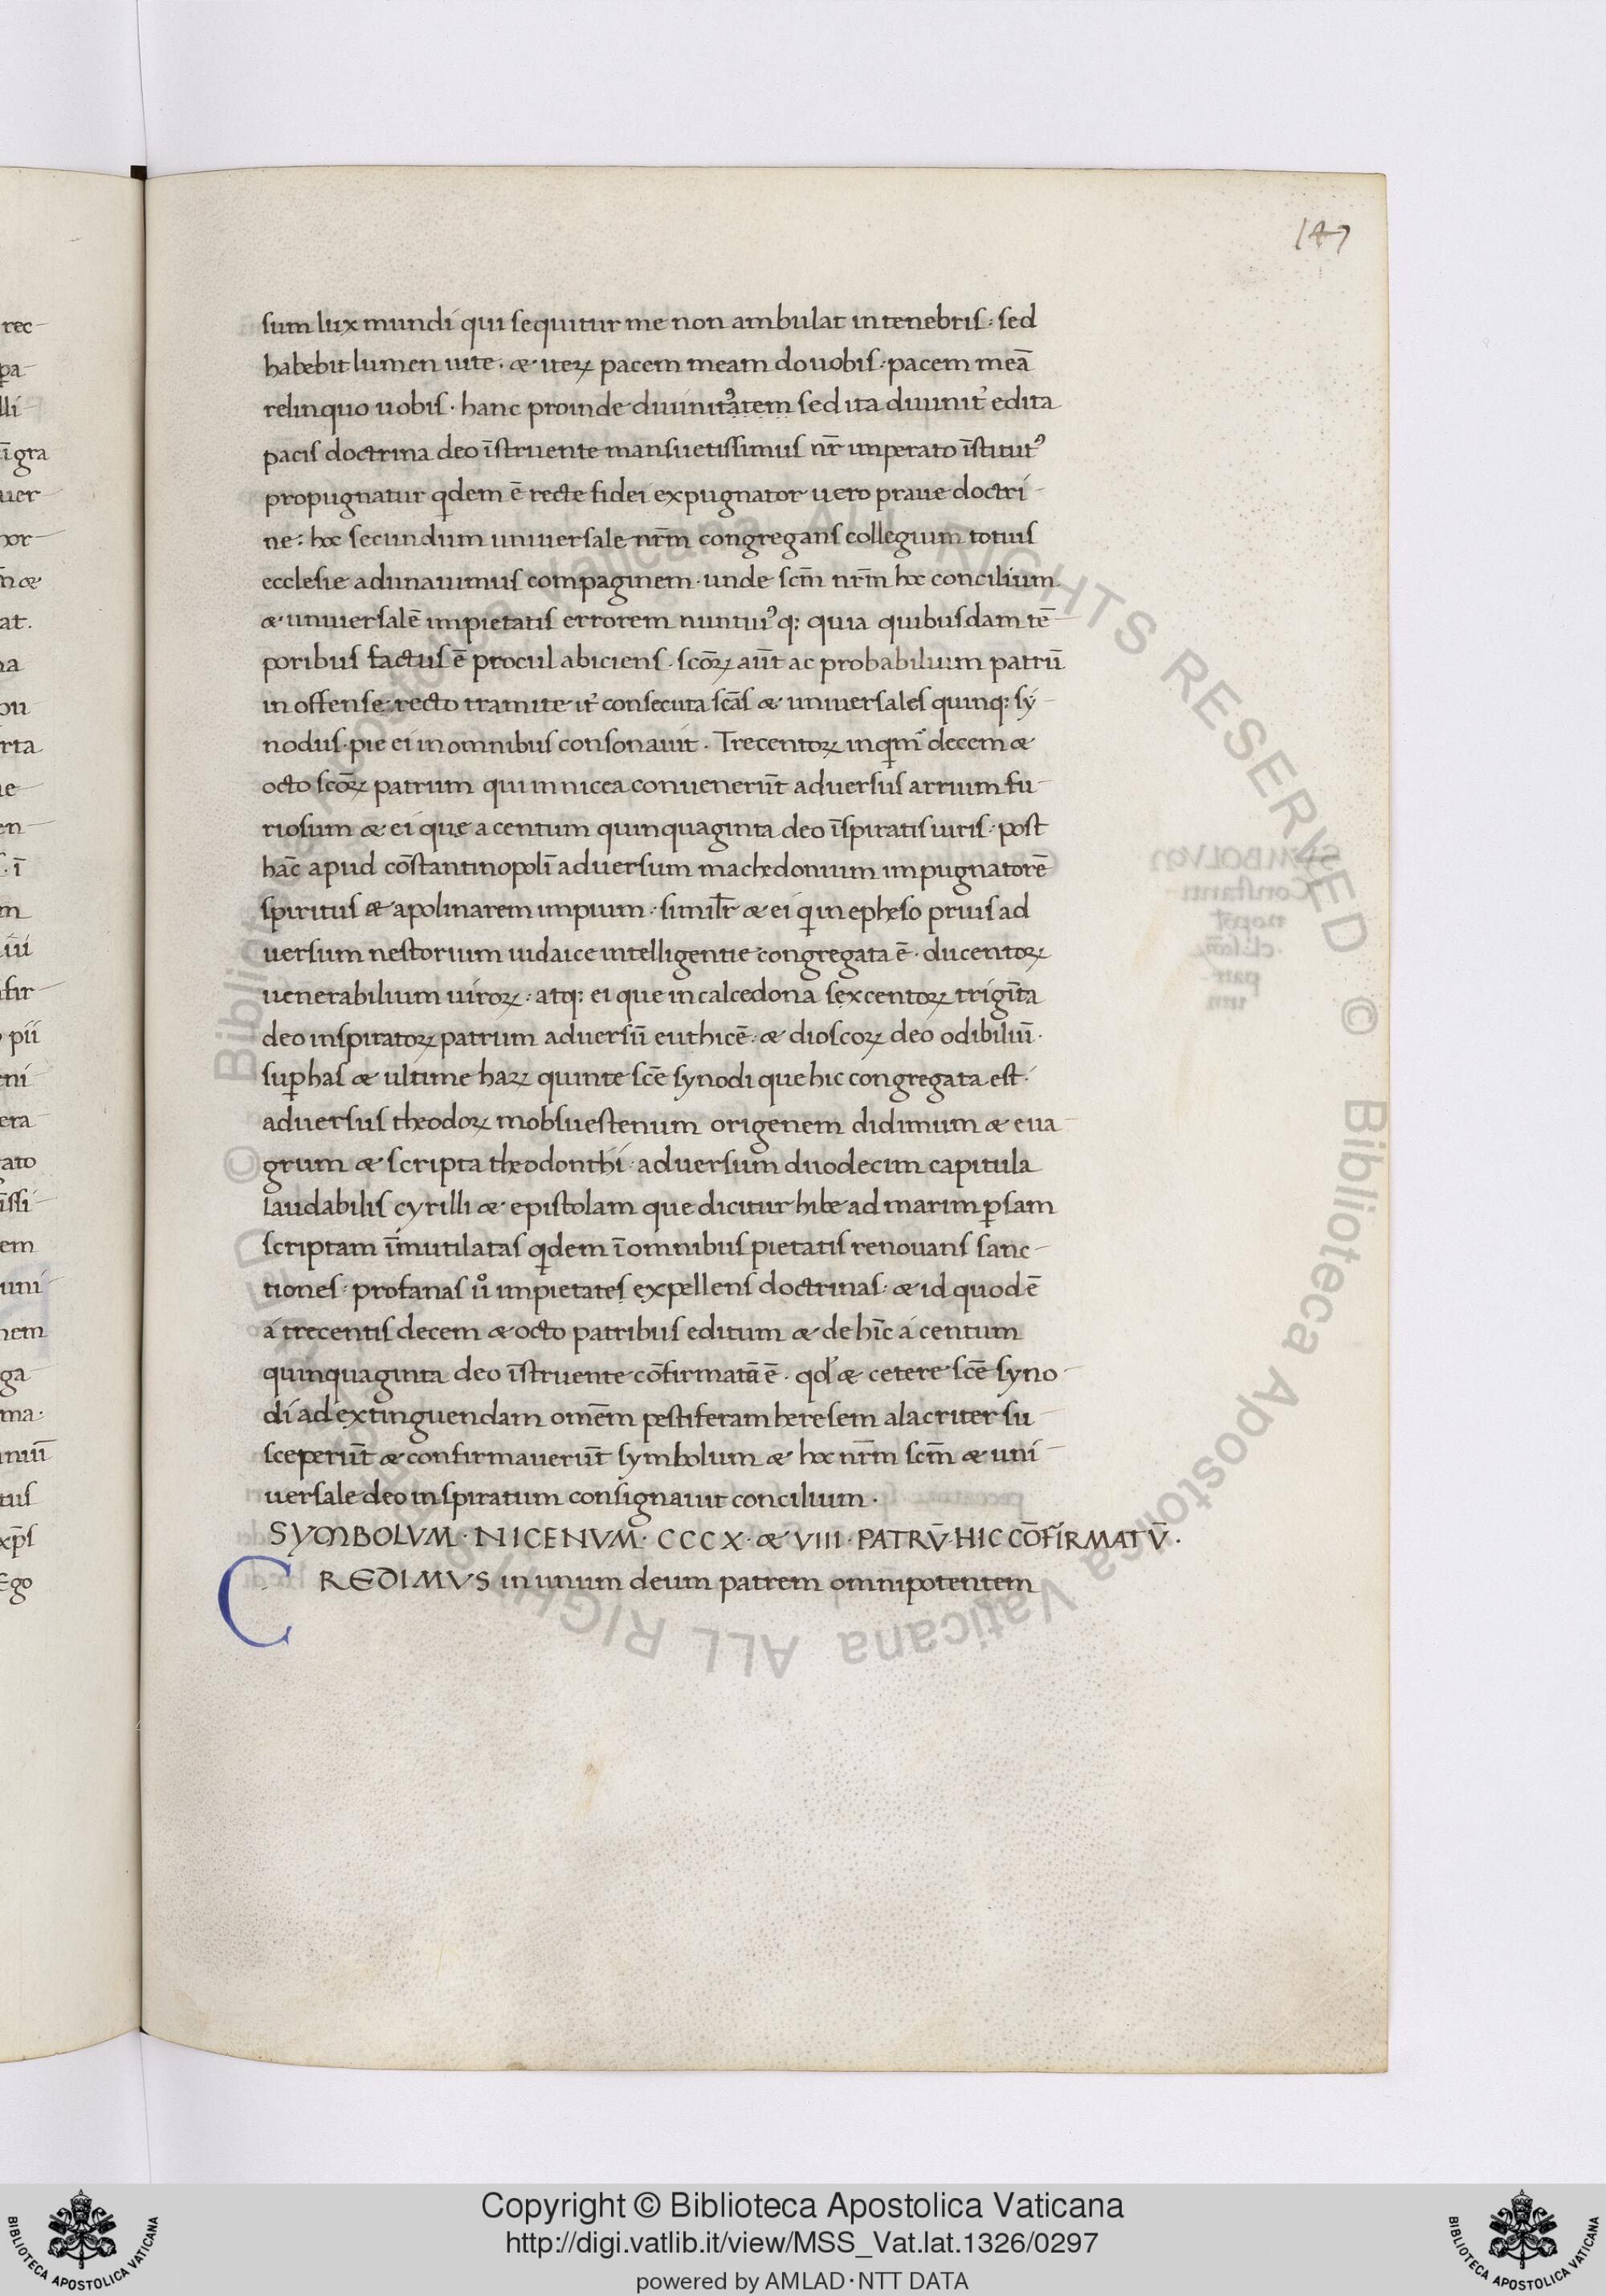 147
sum lux mundi qui sequitur me non ambulat in tenebris: sed
habebit lumen uite. & iteꝝ pacem meam do uobis: pacem meā
relinquo uobis. hanc proinde diuinitꝰatem sed ita diuinit᾽ edita
pacis doctrina deo īstruente mansuetissimus nr̄ imperato īstitutꝰ
propugnatur qdem ē recte fidei expugnator uero praue doctri-
ne: hoc secundum uniuersale nr̄m congregans collegium totius
ecclesie adunauimus compaginem. unde scm̄ nr̄m hoc concilium
& uniuersalē impietatis errorem nuntuiꝰ q: quia quibusdam tē-
poribus factus ē procul abiciens. scōꝝ aūt ac probabilium patrū
in offense recto tramite it᾽ consecuta scās & uniuersales quinq: sy-
nodus. pie ei in omnibus consonauit. Trecentoꝝ inqm̄ decem &
octo scōꝝ patrum qui in nicea conuenerūt aduersus arrium fu-
riosum & ei que a centum quinquaginta deo īspiratis uiris: post
hāc apud cōstantinopolī aduersum machedonium impugnatorē
spiritus & apolinarem impium: similr̄ & ei q in epheso prius ad
uersum nestorium iudaice intelligentie congregata ē. ducentoꝝ
uenerabilium uiroꝝ: atq: ei que in calcedona sexcentoꝝ trigīta
deo inspiratoꝝ patrum aduersū euthicē: & dioscoꝝ deo odibiliū.
suꝑ has & ultime haꝝ quinte scē synodi que hic congregata est:
aduersus theodoꝝ mobsuestenum origenem didimum & eua-
grum & scripta theodonthi: aduersum duodecim capitula
laudabilis cyrilli & epistolam que dicitur hibe ad marim ꝑsam
scriptam īmutilatas qdem ī omnibus pietatis renouans sanc-
tiones: profanas uͦ impietates expellens doctrinas: & id quod ē
á trecentis decem & octo patribus editum & de hīc á centum
quinquaginta deo īstruente cōfirmatā ē. qd̓ & cetere scē syno-
di ad extinguendam omēm pestiferam heresem alacriter su-
sceperūt & confirmauerūt symbolum & hoc nr̄m scm̄ & uni-
uersale deo inspiratum consignauit concilium.
SYMBOLVM. NICENVM. CCCX. & VIII. PATRV̄ HIC CŌFIRMATV̄.
CREDIMVS in unum deum patrem omnipotentem
Copyright © Biblioteca Apostolica Vaticana
http://digi.vatlib.it/view/MSS_Vat.lat.1326/0297
powered by AMLAD·NTT DATA
BIBLIOTECA APOSTOLICA VATICANA
BIBLIOTECA APOSTOLICA VATICANA
© Biblioteca Apostolica Vaticana ALL RIGHTS RESERVED © Biblioteca Apostolica Vaticana ALL RIGHTS RESERVED